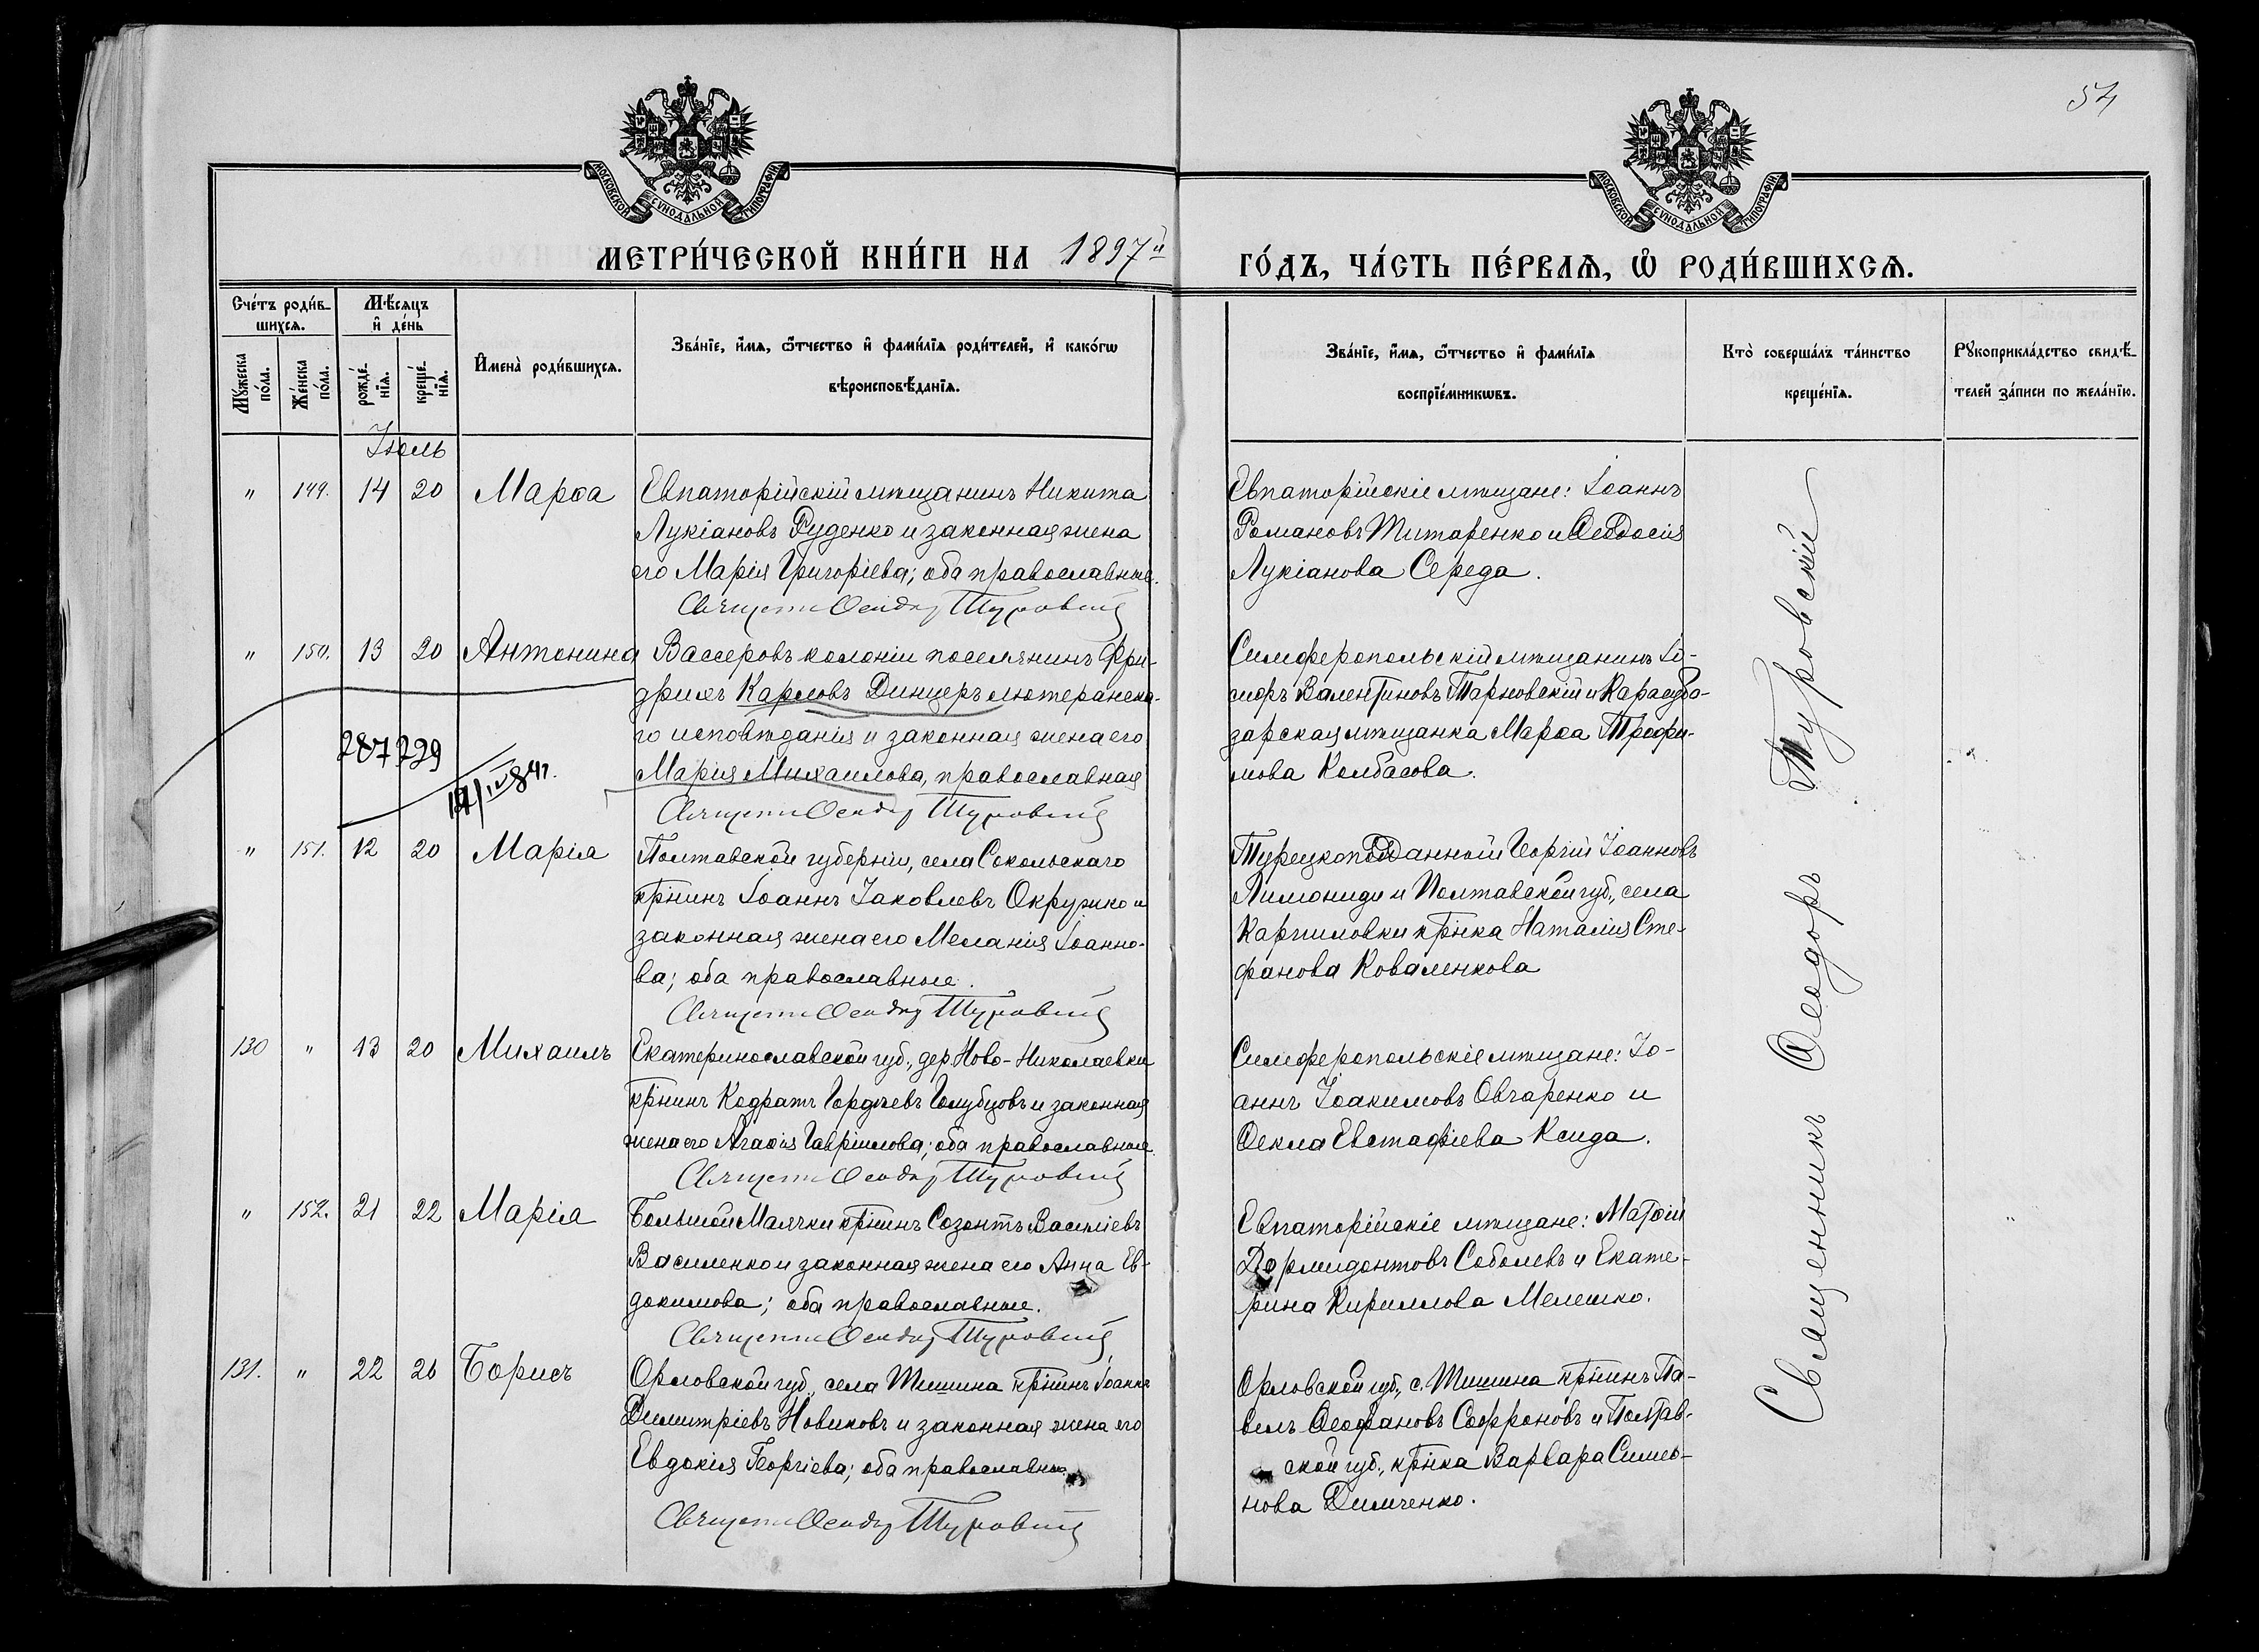 54
МОСКОВСКОЙ СУНОДАЛЬНОЙ ТИПОГРАФІИ
МОСКОВСКОЙ СУНОДАЛЬНОЙ ТИПОГРАФІИ
МЕТРИ́ЧЕСКОЙ КНИ́ГИ НА 1897й
ГО́ДЪ, ЧА́СТЬ ПЕ́РВАѦ, Ѡ҆ РОДИ́ВШИХСѦ.
Сче́тъ роди́в-
шихсѧ.
Мꙋ́жеска
по́ла.
Же́нска
по́ла.
Мѣ́сѧцъ
и҆ де́нь
рожде́-
нїѧ.
креще́-
нїѧ.
И҆мена̀ роди́вшихсѧ.
Зва́нїе, и҆́мѧ, ѻ҆́тчество и҆ фами́лїѧ роди́телей, и҆ како́гѡ
вѣроисповѣ́данїѧ.
Зва́нїе, и҆́мѧ, ѻ҆́тчество и҆ фами́лїѧ
воспрїе́мникѡвъ.
Кто̀ соверша́лъ та́инство
креще́нїѧ.
Рꙋкоприкла́дство свидѣ́-
телей за́писи по жела́нїю.
Іюль
" 149. 14 20 Марѳа
Евпаторійскій мѣщанинъ Никита
Лукіановъ Руденко и законная жена
его Марія Григоріева; оба православные.
Священ Ѳеодор Туровскій
Евпаторійскіе мѣщане: Іоаннъ
Романовъ Титаренко и Ѳеодосія
Лукіанова Середа.
" 150. 13 20 Антонина
Вассеровъ колоніи поселянинъ Фри-
дрихъ Карловъ Динцеръ лютеранска-
го исповѣданія и законная жена его
Марія Михаилова, православная
Священ Ѳеодор Туровскій
287229
Симферопольскій мѣщанинъ Іо-
Валентиновъ Тарновскій и Карасубо-
зарская мѣщанка Марѳа Трофи-
мова Колбасова.
" 151. 12 20 Марія
Полтавской губерніи, села Сокольскаго
крнинъ Іоаннъ Іаковлевъ и
законная жена его Меланія Іоанно-
ва; оба православные.
Священ Ѳеодор Туровскій
Турецкоподданной Георгій Іоанновъ
Лимониди и Полтавской губ., села
Карпиловки крнка Наталія Сте-
фанова Коваленкова
130 " 13 20 Михаилъ
Екатеринославской губ., дер. Ново-Николаевки
крнинъ Кодратъ Гордѣевъ Голубцовъ и законная
жена его Агаѳія Гавріилова; оба православные.
Священ Ѳеодор Туровскій
Симферопольскіе мѣщане: Іо-
аннъ Іоакимовъ Овчаренко и
Ѳекла Евстафіева Ксида.
" 152. 21 22 Марія
Большой Маячки крнинъ Созонтъ Василіевъ
Василенко и законная жена его Анна Ев-
докимова; оба православные.
Священ Ѳеодор Туровскій
Евпаторійскіе мѣщане: Матѳій
Дормидонтовъ Соболевъ и Екате-
рина Кириллова Мелешко.
131. " 22 26 Борисъ
Орловской губ., села Тишина крнинъ Іоаннъ
Димитріевъ Новиковъ и законная жена его
Евдокія Георгіева; оба православные
Священ Ѳеодор Туровскій
Орловской губ., с. Тишина крнинъ Па-
велъ Ѳеофановъ Софроновъ и Полтав-
ской губ., крнка Варвара Симео-
нова Димченко.
Священникъ Ѳеодоръ Туровскій